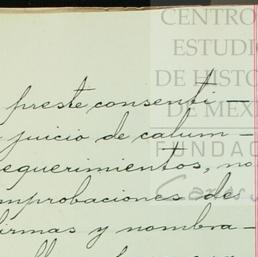 CENTRO
ESTUDI
DE HISTO
DE MEX
FUNDAC
Carlos S
preste consenti-
juicio de calum-
equerimientos, no
mprobaciones de
irmas y nombra-